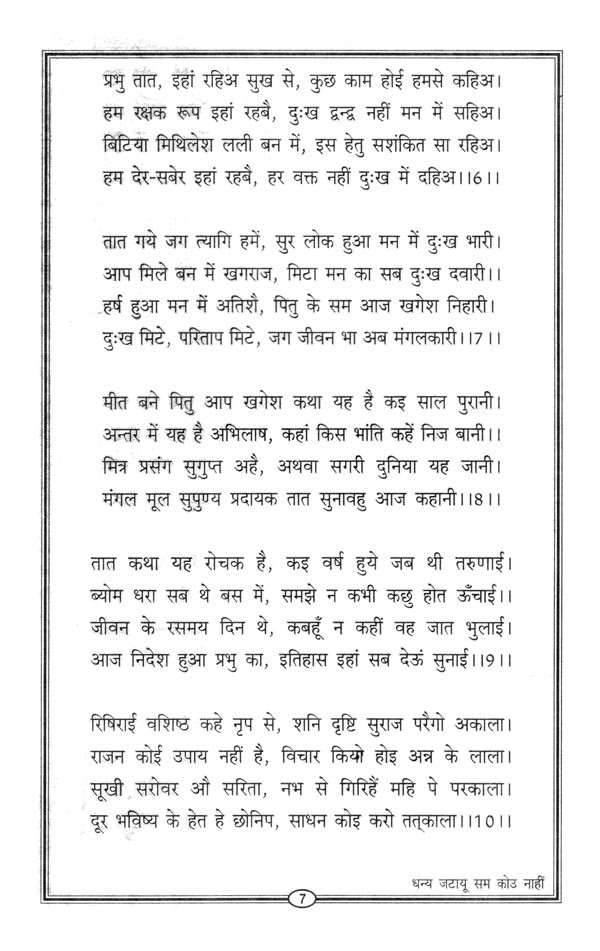 प्रभु तात, इहां रहिअ सुख से, कुछ काम होई हमसे कहिअ।
हम रक्षक रूप इहां रहबै, दुःख द्वन्द्व नहीं मन में सहिअ।
बिटिया मिथिलेश लली बन में, इस हेतु सशंकित सा रहिअ।
हम देर-सबेर इहां रहबै, हर वक्त नहीं दुःख में दहिअ।।6।।
तात गये जग त्यागि हमें, सुर लोक हुआ मन में दुःख भारी।
आप मिले बन में खगराज, मिटा मन का सब दुःख दवारी।।
हर्ष हुआ मन में अतिशै, पितु के सम आज खगेश निहारी।
दुःख मिटे, परिताप मिटे, जग जीवन भा अब मंगलकारी।।7।।
मीत बने पितु आप खगेश कथा यह है कइ साल पुरानी।
अन्तर में यह है अभिलाष, कहां किस भांति कहें निज बानी।।
मित्र प्रसंग सुगुप्त अहै, अथवा सगरी दुनिया यह जानी।
मंगल मूल सुपुण्य प्रदायक तात सुनावहु आज कहानी।।8।।
तात कथा यह रोचक है, कइ वर्ष हुये जब थी तरुणाई।
ब्योम धरा सब थे बस में, समझे न कभी कछु होत ऊँचाई।।
जीवन के रसमय दिन थे, कबहूँ न कहीं वह जात भुलाई।
आज निदेश हुआ प्रभु का, इतिहास इहां सब देऊं सुनाई।।9।।
रिषिराई वशिष्ठ कहे नृप से, शनि दृष्टि सुराज परैगो अकाला।
राजन कोई उपाय नहीं है, विचार कियो होइ अन्न के लाला।
सूखी सरोवर औ सरिता, नभ से गिरिहैं महि पे परकाला।
दूर भविष्य के हेत हे छोनिप, साधन कोइ करो तत्काला।।10।।
धन्य जटायू सम कोउ नाहीं
7